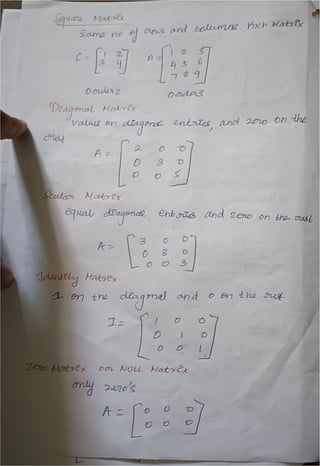 Square Matrix
Same no of rows and columns. nxn Matrix
C = [1 2
3 4]
A = [1 2 3
4 5 6
7 8 9]
Order 2 Order 3
Diagonal Matrix
values on diagonal entries, and zero on the
rest
A = [2 0 0
0 3 0
0 0 5]
Scalar Matrix
equal diagonal entries and zero on the rest
A = [3 0 0
0 3 0
0 0 3]
Identity Matrix
1 on the diagonal and 0 on the rest
I = [1 0 0
0 1 0
0 0 1]
Zero Matrix or NULL Matrix
only zero's
A = [0 0 0
0 0 0]